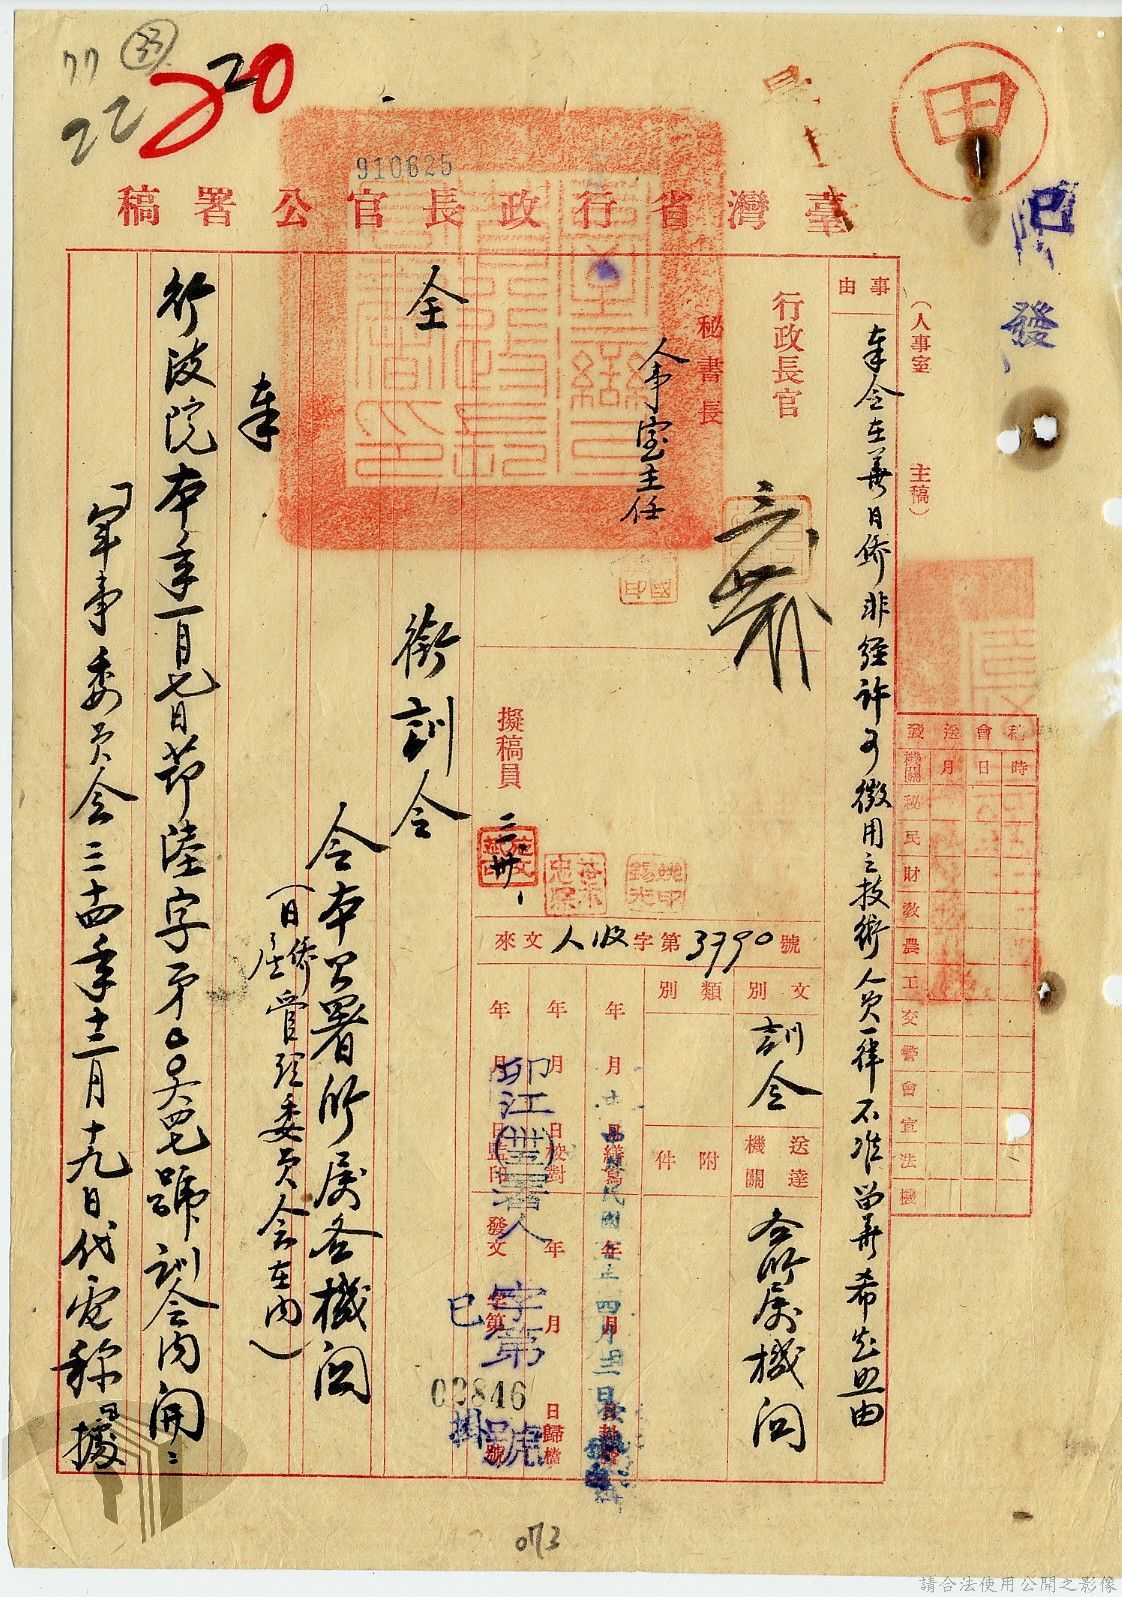 77 33
22 220
910625
甲
臺灣省行政長官公署稿
已
發
（人事室 主稿）
事由
奉令在華日僑非經許可徵用之技術人員一律不准留華希知照由
行政長官
秘書長
人事室主任
擬稿員
來文人收字第3790號
文別 訓令
類別
送達機關 各所屬機関
附件
年 月 日繕寫
年 月 日校對
年 月 日監印
年 月 日歸檔
發文 字第 號
卯江(卅五)署人字第03846號
已掛
稿會送發
時日月機關
秘
民
財
教
農
工
交
警
會
宣
法
機
全銜訓令
令本公署所属各機関
（日僑管理委員会在内）
奉
行政院本年一月七日節陸字第〇〇六四七號訓令内開：
「軍事委員会三十四年十二月十九日代電称『據
073
請合法使用公開之影像